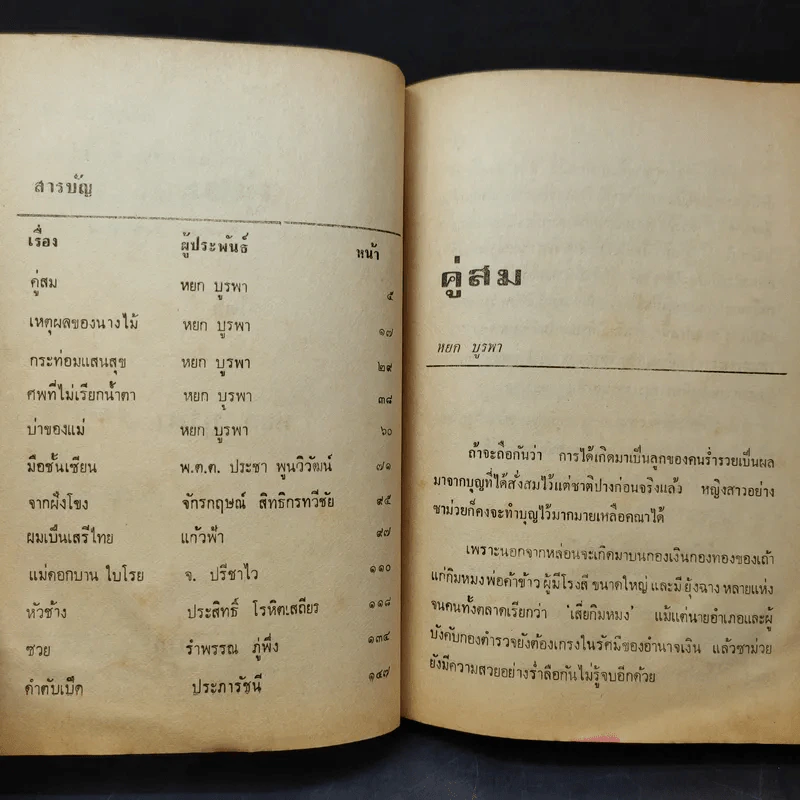 สารบัญ
เรื่อง ผู้ประพันธ์ หน้า
คู่สม หยก บูรพา ๕
เหตุผลของนางไม้ หยก บูรพา ๑๗
กระท่อมแสนสุข หยก บูรพา ๒๙
ศพที่ไม่เรียกน้ำตา หยก บูรพา ๓๘
บ่าของแม่ หยก บูรพา ๖๐
มือชั้นเซียน พ.ต.ต. ประชา พูนวิวัฒน์ ๗๑
จากฝั่งโขง จักรกฤษณ์ สิทธิกรทวีชัย ๙๕
ผมเป็นเสรีไทย แก้วฟ้า ๙๗
แม่ดอกบาน ใบโรย จ. ปรีชาไว ๑๑๐
หัวช้าง ประสิทธิ์ โรหิตะเสถียร ๑๑๘
ซวย รำพรรณ ภู่พึ่ง ๑๓๔
ดำตับเป็ด ประภารัชนี ๑๔๗
คู่สม
หยก บูรพา
ถ้าจะถือกันว่า การได้เกิดมาเป็นลูกของคนร่ำรวยเป็นผล
มาจากบุญที่ได้สั่งสมไว้แต่ชาติปางก่อนจริงแล้ว หญิงสาวอย่าง
ซาม่วยก็คงจะทำบุญไว้มากมายเหลือคณาได้
เพราะนอกจากหล่อนจะเกิดมาบนกองเงินกองทองของเถ้า
แก่กิมหมง พ่อค้าข้าว ผู้มีโรงสี ขนาดใหญ่ และมี ยุ้งฉาง หลายแห่ง
จนคนทั้งตลาดเรียกว่า 'เสี่ยกิมหมง' แม้แต่นายอำเภอและผู้
บังคับกองตำรวจยังต้องเกรงในรัศมีของอำนาจเงิน แล้วซาม่วย
ยังมีความสวยอย่างร่ำลือกันไม่รู้จบอีกด้วย